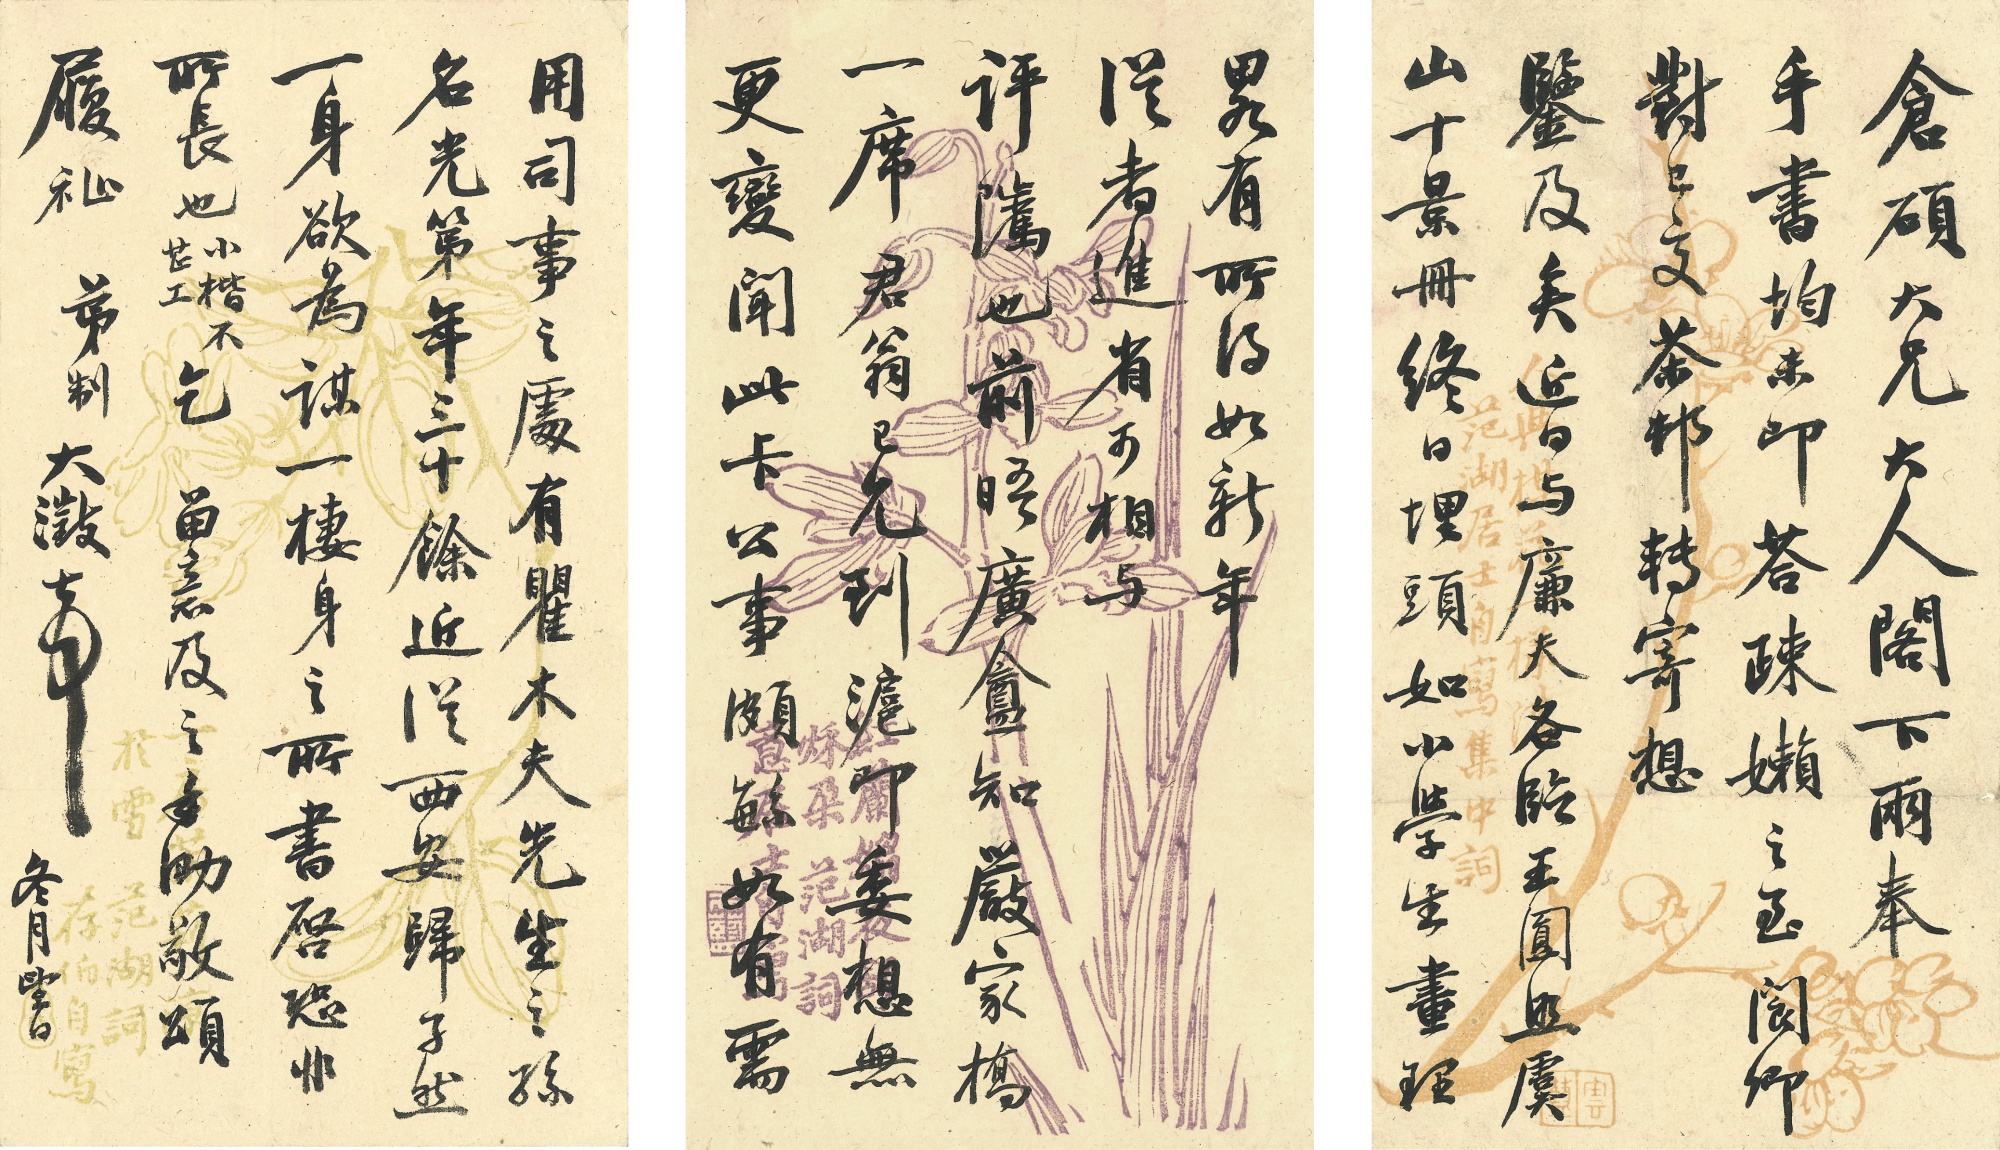 倉碩大兄大人閣下兩奉
手書均未即答疎嬾之至閬卿
對已交茶邨轉寄想
鑒及矣近日与廉夫各臨王圓照虞
山十景冊終日埋頭如小學生畫程
畧有所得如新年
從者進省可相与
評騭也前晤廣盫知嚴家橋
一席君翁已允到滬即委想無
更變聞此卡公事頗繇如有需
用司事之處有瞿木夫先生之孫
名光第年三十餘近從西安歸孑然
一身欲為謀一棲身之所書啓恐非
所長也小楷不
甚工乞留意及之手助敬頌
履祉 弟制大澂
冬月
范湖居士自寫集中詞
范湖詞
於雪
范湖詞
存伯自寫